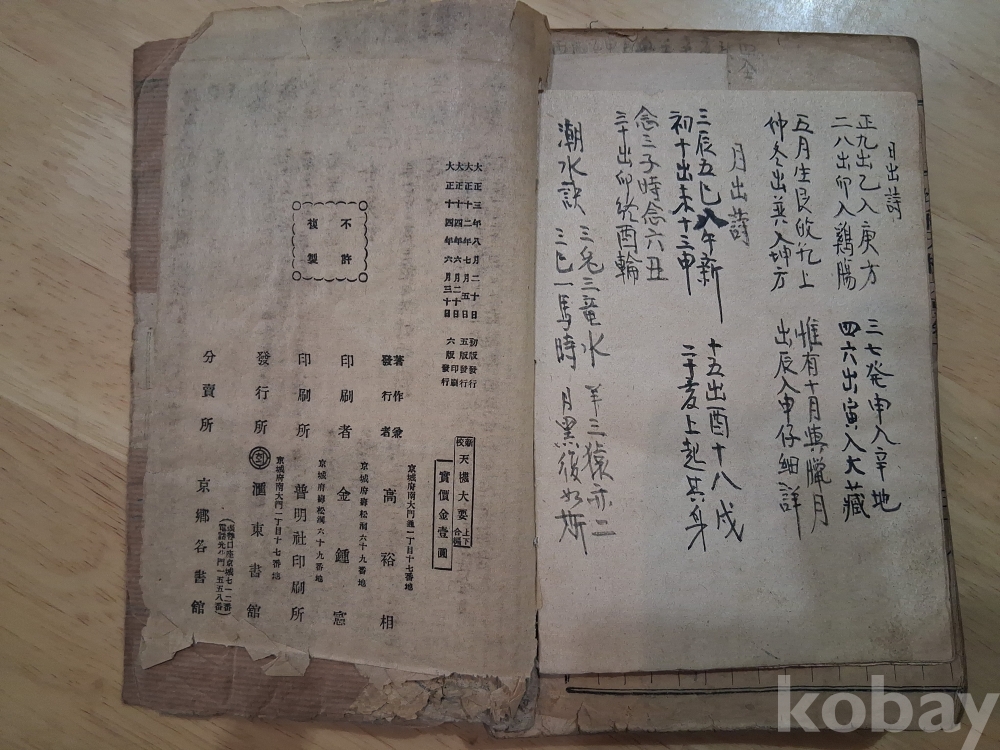 日出詩
正九出乙入庚方 三七発申入辛地
二八出卯入鷄膓 四六出寅入大藏
五月生艮皈乾上 惟有十月與臘月
仲冬出巽入坤方 出辰入申仔細詳
月出詩
三辰五巳八午新 十五出酉十八戌
初十出未十三申 二十亥上起其身
念三子時念六丑
三十出卯終酉輪
潮水訣 三兎三竜水 羊三猿亦二
三巳一馬時 月黑後如斯
大正三年八月二十日 初版發行
大正十二年七月五日 五版發行
大正十四年六月二十日 六版印刷
大正十四年六月三十日 六版發行
不許
複製
新校 天機大要 上下合編
實價金壹圓
京城府南大門通一丁目十七番地
著作兼
發行者 高裕相
京城府壽松洞六十九番地
印刷者 金鍾憲
京城府壽松洞六十九番地
印刷所 普明社印刷所
京城府南大門通一丁目十七番地
發行所 滙東書館
振替口座京城七一二番
電話光化門一五五八番
分賣所 京鄉各書館
kobay